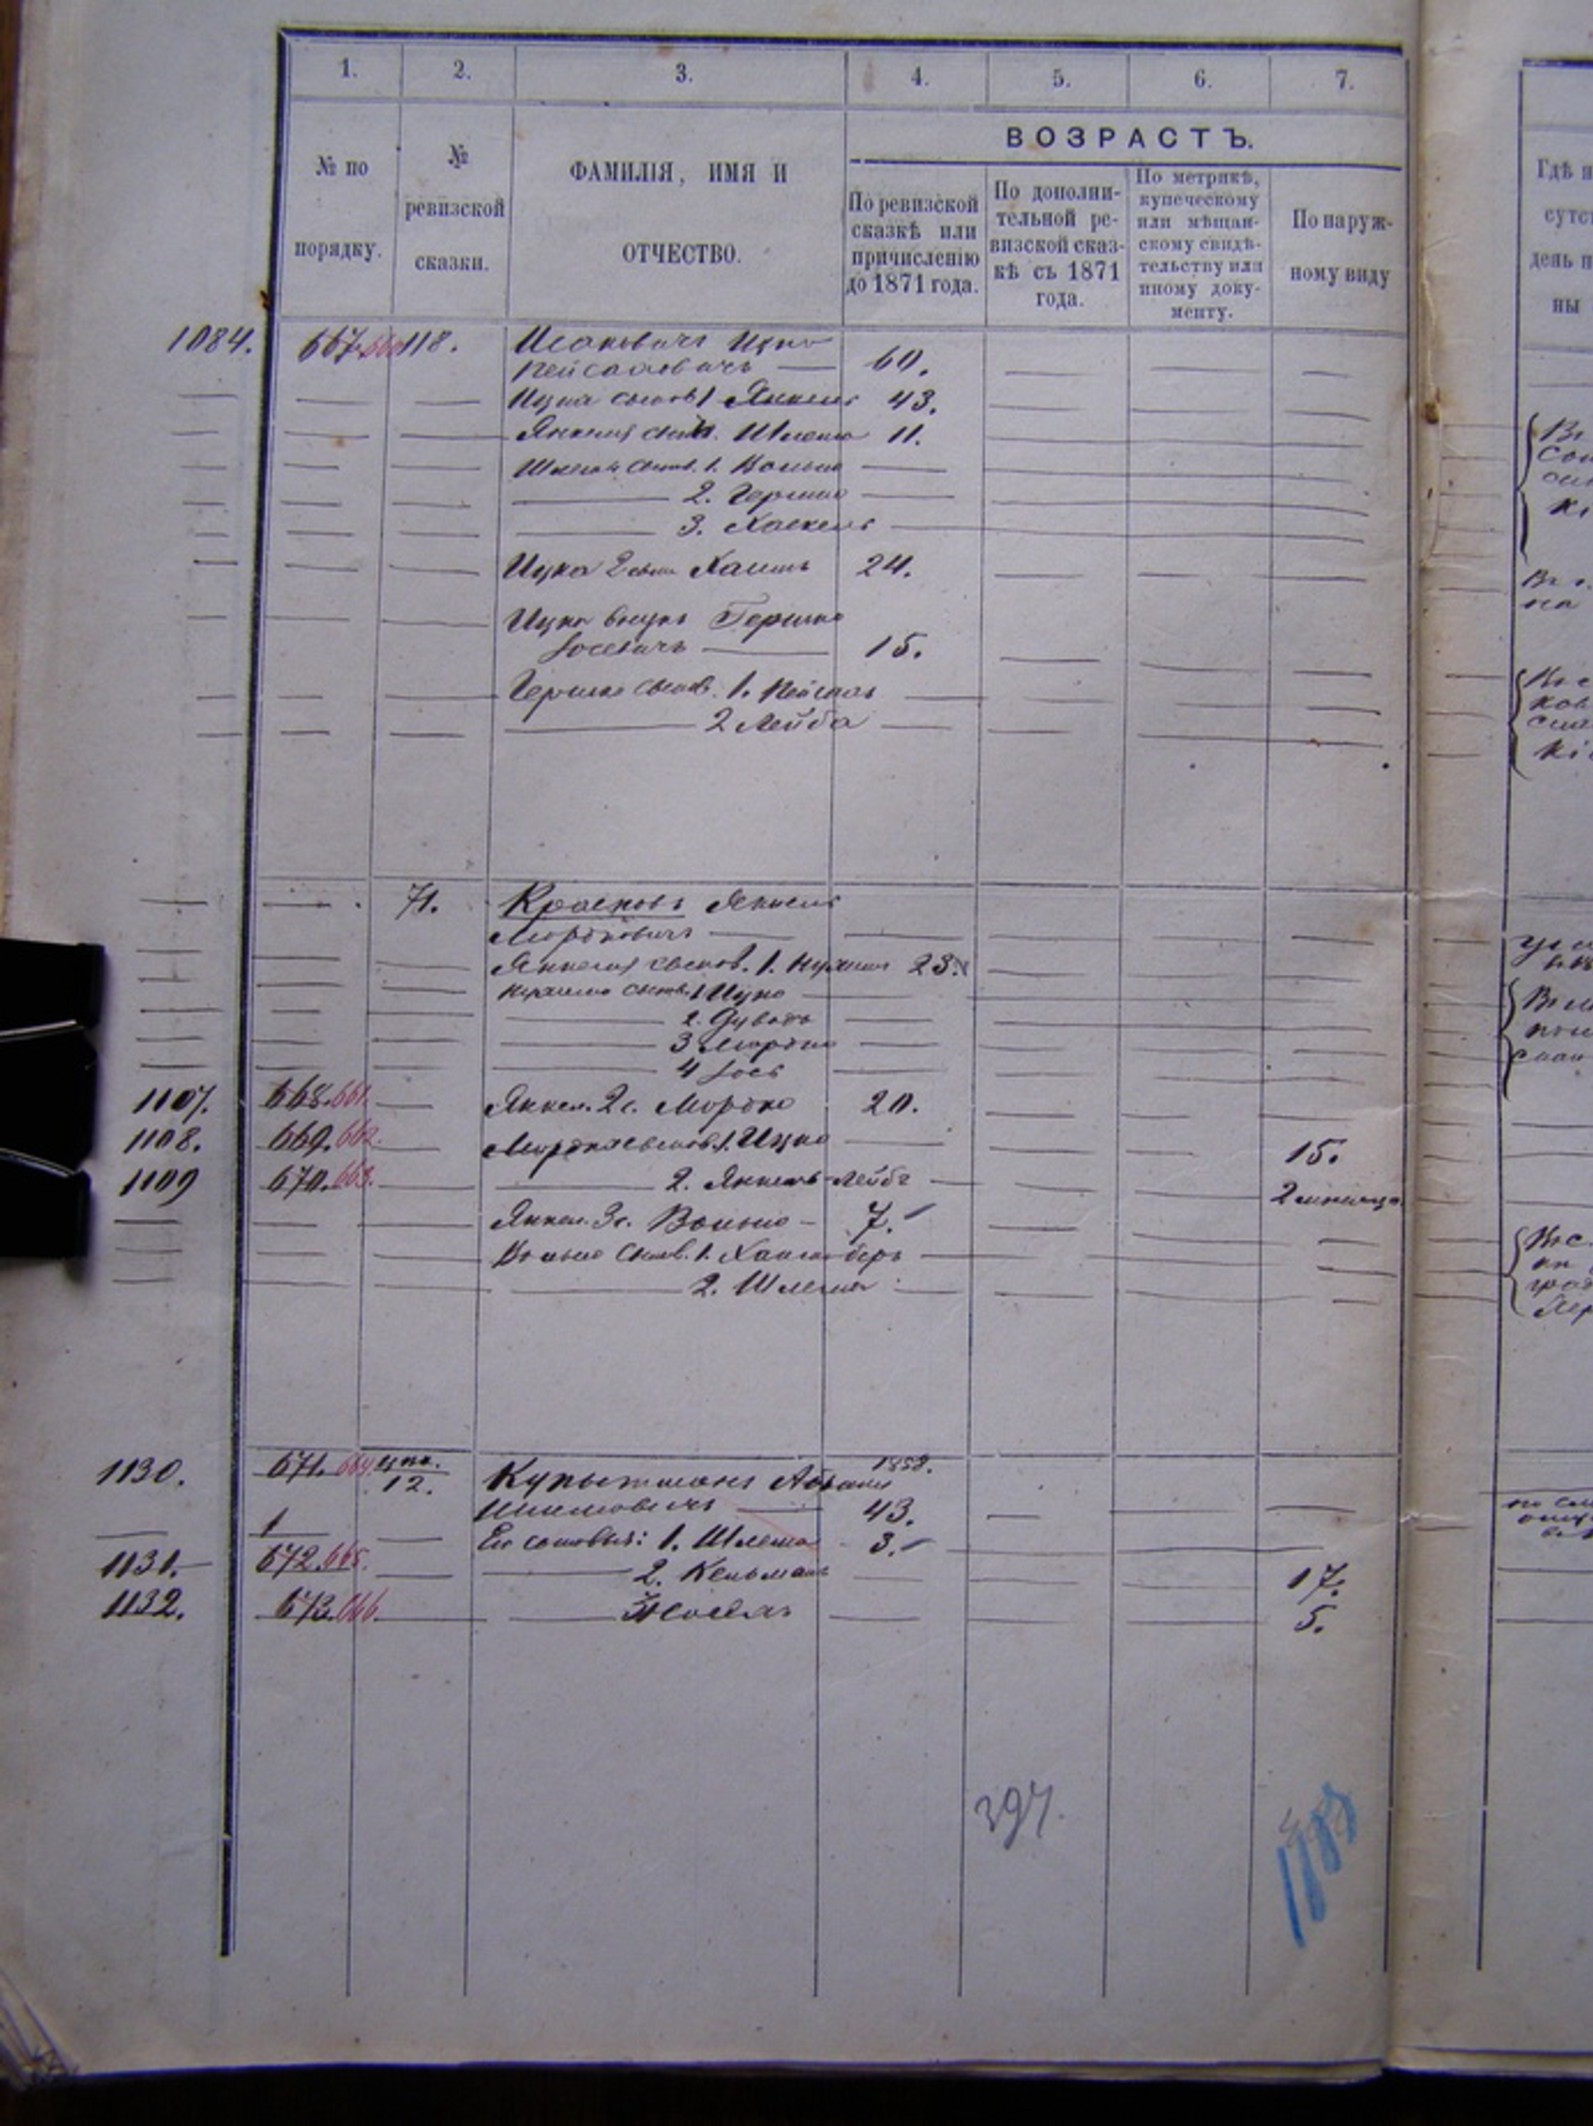 1. 2. 3. 4. 5. 6. 7.
№ по порядку.
№ ревизской сказки.
ФАМИЛІЯ, ИМЯ И ОТЧЕСТВО.
ВОЗРАСТЪ.
По ревизской сказкѣ или причисленію до 1871 года.
По дополни-
тельной ре-
визской сказ-
кѣ съ 1871
года.
По метрикѣ,
купеческому
или мѣщан-
скому свидѣ-
тельству или
иному доку-
менту.
По наруж-
ному виду
Гдѣ н
сутст
день п
ны
1084. 667. 660 118. Исаковичъ Ицко
Пейсаховичъ — 60.
Ицка сынов. 1 Янкель 43.
Янкеля сын. Шлема 11.
Шлемы сынов. 1. Волько
2. Гершко
3. Хаскель
Ицка 2 сын Хаимъ 24.
Ицка внукъ Гершко
Іосевичъ — 15.
Гершка сынов. 1. Пейсахъ
2 Лейба
71. Красновъ Янкель
Мордковичъ
Янкеля сынов. 1. 23.
сынов. 1 Ицко
2. Дувидъ
3 Мордко
4 Іось
1107. 668. 661. Янкел. 2 с. Мордко 20.
1108. 669. 662. Мордка сынов. 1. Ицко 15.
1109 670. 663. 2. Янкель-Лейба 2 мѣсяца
Янкел. 3 с. Волько — 7.
Волько сынов. 1. Хаим-Беръ
2. Шлема
1130. 671. 664. 12. Купытманъ Абрамъ 1858.
43.
1 Его сыновья: 1. Шлема 3.
1131. 672. 665. 2. Кельманъ 17.
1132. 673. 666. 3 5.
397.